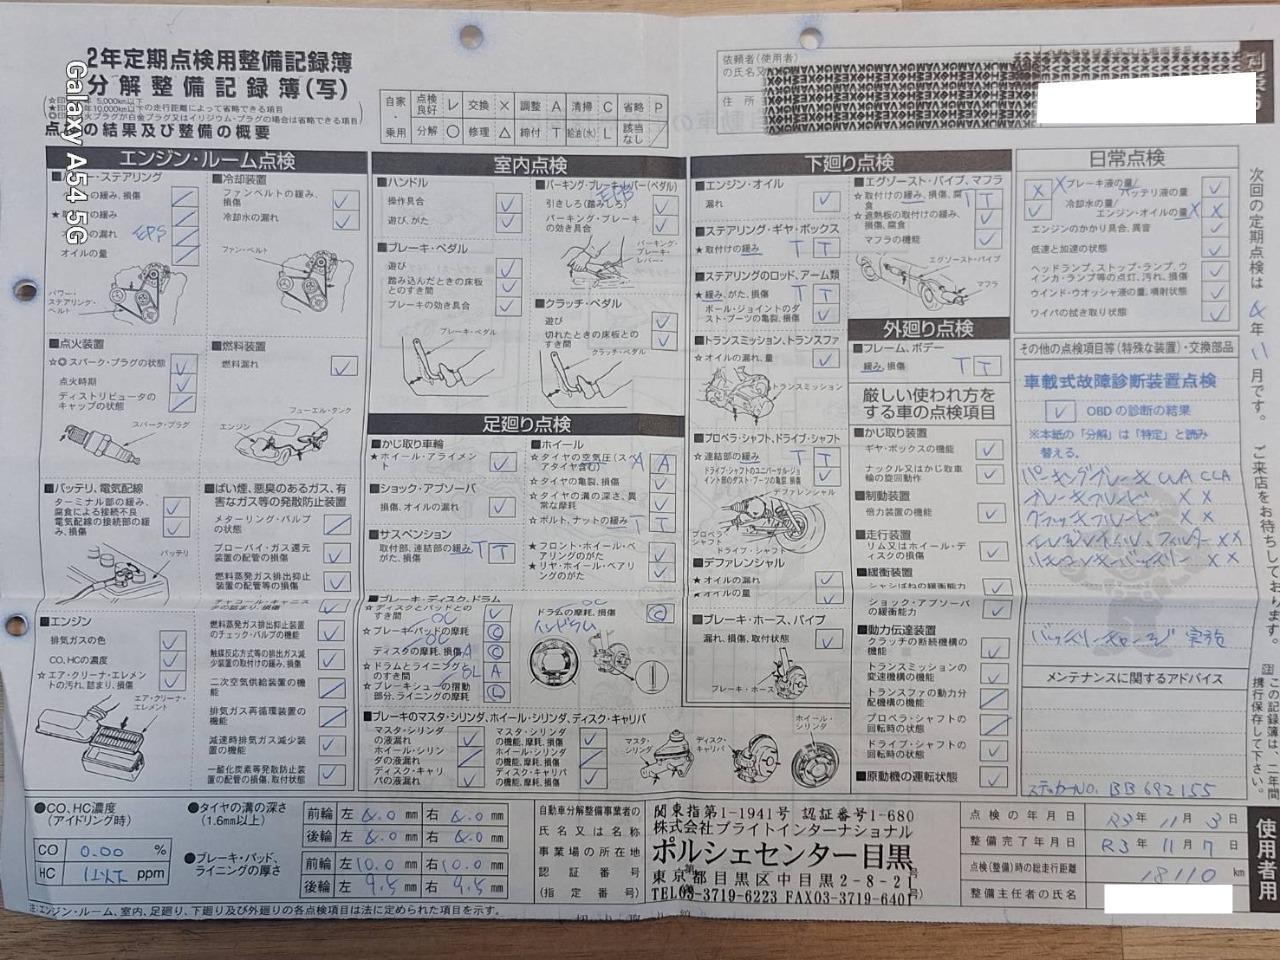 2年定期点検用整備記録簿
分解整備記録簿(写)
点検の結果及び整備の概要
Galaxy A54 5G
自家・乗用
点検良好 レ 交換 × 調整 A 清掃 C 省略 P
分解 ○ 修理 △ 締付 T 給油(水) L 該当なし /
依頼者(使用者)の氏名又
住所
エンジン・ルーム点検
の緩み、損傷
EPS
オイルの量
パワー・ステアリング・ベルト
■冷却装置
ファンベルトの緩み、損傷
冷却水の漏れ
ファン・ベルト
■点火装置
☆◎スパーク・プラグの状態
点火時期
ディストリビュータのキャップの状態
スパーク・プラグ
■燃料装置
燃料漏れ
フューエル・タンク
エンジン
■バッテリ、電気配線
ターミナル部の緩み、腐食による接続不良
電気配線の接続部の緩み、損傷
バッテリ
■ばい煙、悪臭のあるガス、有害なガス等の発散防止装置
メターリング・バルブの状態
ブローバイ・ガス還元装置の配管の損傷
燃料蒸発ガス排出抑止装置の配管等の損傷
燃料蒸発ガス排出抑止装置のチェック・バルブの機能
触媒反応方式等の排出ガス減少装置の取付けの緩み、損傷
二次空気供給装置の機能
排気ガス再循環装置の機能
減速時排気ガス減少装置の機能
一酸化炭素等発散防止装置の配管の損傷、取付状態
■エンジン
排気ガスの色
CO、HCの濃度
☆エア・クリーナ・エレメントの汚れ、詰まり、損傷
エア・クリーナ・エレメント
室内点検
■ハンドル
操作具合
遊び、がた
■ブレーキ・ペダル
遊び
踏み込んだときの床板とのすき間
ブレーキの効き具合
ブレーキ・ペダル
■パーキング・ブレーキ・レバー(ペダル)
EPB
引きしろ(踏みしろ)
パーキング・ブレーキの効き具合
パーキング・ブレーキ・レバー
■クラッチ・ペダル
遊び
切れたときの床板とのすき間
クラッチ・ペダル
足廻り点検
■かじ取り車輪
★ホイール・アライメント
■ショック・アブソーバ
損傷、オイルの漏れ
■サスペンション
取付部、連結部の緩み、がた、損傷 T T
■ホイール
☆タイヤの空気圧(スペアタイヤ含む) A A
☆タイヤの亀裂、損傷
☆タイヤの溝の深さ、異常な摩耗
☆ボルト、ナットの緩み T T
★フロント・ホイール・ベアリングのがた
★リヤ・ホイール・ベアリングのがた
■ブレーキ・ディスク、ドラム
☆ディスクとパッドとのすき間
☆ブレーキ・パッドの摩耗
ディスクの摩耗、損傷
☆ドラムとライニングとのすき間
☆ブレーキシューの摺動部分、ライニングの摩耗
ドラムの摩耗、損傷
インドラム
■ブレーキのマスタ・シリンダ、ホイール・シリンダ、ディスク・キャリパ
マスタ・シリンダの液漏れ
ホイール・シリンダの液漏れ
ディスク・キャリパの液漏れ
マスタ・シリンダの機能、摩耗、損傷
ホイール・シリンダの機能、摩耗、損傷
ディスク・キャリパの機能、摩耗、損傷
マスタ・シリンダ
ディスク・キャリパ
ホイール・シリンダ
下廻り点検
■エンジン・オイル
漏れ
■ステアリング・ギヤ・ボックス
★取付けの緩み T T
■ステアリングのロッド、アーム類
★緩み、がた、損傷 T T
ボール・ジョイントのダスト・ブーツの亀裂、損傷
■トランスミッション、トランスファ
☆オイルの漏れ、量
トランスミッション
■プロペラ・シャフト、ドライブ・シャフト
☆連結部の緩み T T
ドライブ・シャフトのユニバーサル・ジョイント部のダスト・ブーツの亀裂、損傷
デファレンシャル
プロペラシャフト
ドライブ・シャフト
■デファレンシャル
★オイルの漏れ
★オイルの量
■ブレーキ・ホース、パイプ
漏れ、損傷、取付状態
ブレーキ・ホース
■エグゾースト・パイプ、マフラ
☆取付けの緩み、損傷、腐食 T T
☆遮熱板の取付けの緩み、損傷、腐食
マフラの機能
エグゾースト・パイプ
マフラ
外廻り点検
■フレーム、ボデー
緩み、損傷 T T
厳しい使われ方をする車の点検項目
■かじ取り装置
ギヤ・ボックスの機能
ナックル又はかじ取車輪の旋回動作
■制動装置
倍力装置の機能
■走行装置
リム又はホイール・ディスクの損傷
■緩衝装置
ショック・アブソーバの緩衝能力
■動力伝達装置
クラッチの断続機構の機能
トランスミッションの変速機構の機能
トランスファの動力分配機構の機能
プロペラ・シャフトの回転時の状態
ドライブ・シャフトの回転時の状態
■原動機の運転状態
日常点検
ブレーキ液の量/バッテリ液の量
冷却水の量/エンジン・オイルの量
エンジンのかかり具合、異音
低速と加速の状態
ヘッドランプ、ストップ・ランプ、ウインカ・ランプ等の点灯、汚れ、損傷
ウインド・ウオッシャ液の量、噴射状態
ワイパの拭き取り状態
その他の点検項目等(特殊な装置)・交換部品
車載式故障診断装置点検
OBDの診断の結果
※本紙の「分解」は「特定」と読み替える。
パーキングブレーキ CLA CLA
ブレーキフルード × ×
クラッチフルード × ×
××
リモコンキーバッテリー ××
バッテリーチャージ 実施
メンテナンスに関するアドバイス
ステッカーNO. BB692155
次回の定期点検は 4年11月です。 ご来店をお待ちしております。
注 この記録簿は、二年間携行保存して下さい。
使用者用
●CO、HC濃度(アイドリング時)
CO 0.00 %
HC 1以下 ppm
●タイヤの溝の深さ(1.6mm以上)
前輪 左 6.0 mm 右 6.0 mm
後輪 左 6.0 mm 右 6.0 mm
●ブレーキ・パッド、ライニングの厚さ
前輪 左 10.0 mm 右 10.0 mm
後輪 左 9.5 mm 右 9.5 mm
注:エンジン・ルーム、室内、足廻り、下廻り及び外廻りの各点検項目は法に定められた項目を示す。
自動車分解整備事業者の氏名又は名称
事業場の所在地
認証番号
(指定番号)
関東指第1-1941号 認証番号1-680
株式会社ブライトインターナショナル
ポルシェセンター目黒
東京都目黒区中目黒2-8-21
TEL03-3719-6223 FAX03-3719-6401
点検の年月日 R3年11月3日
整備完了年月日 R3年11月7日
点検(整備)時の総走行距離 18110 km
整備主任者の氏名